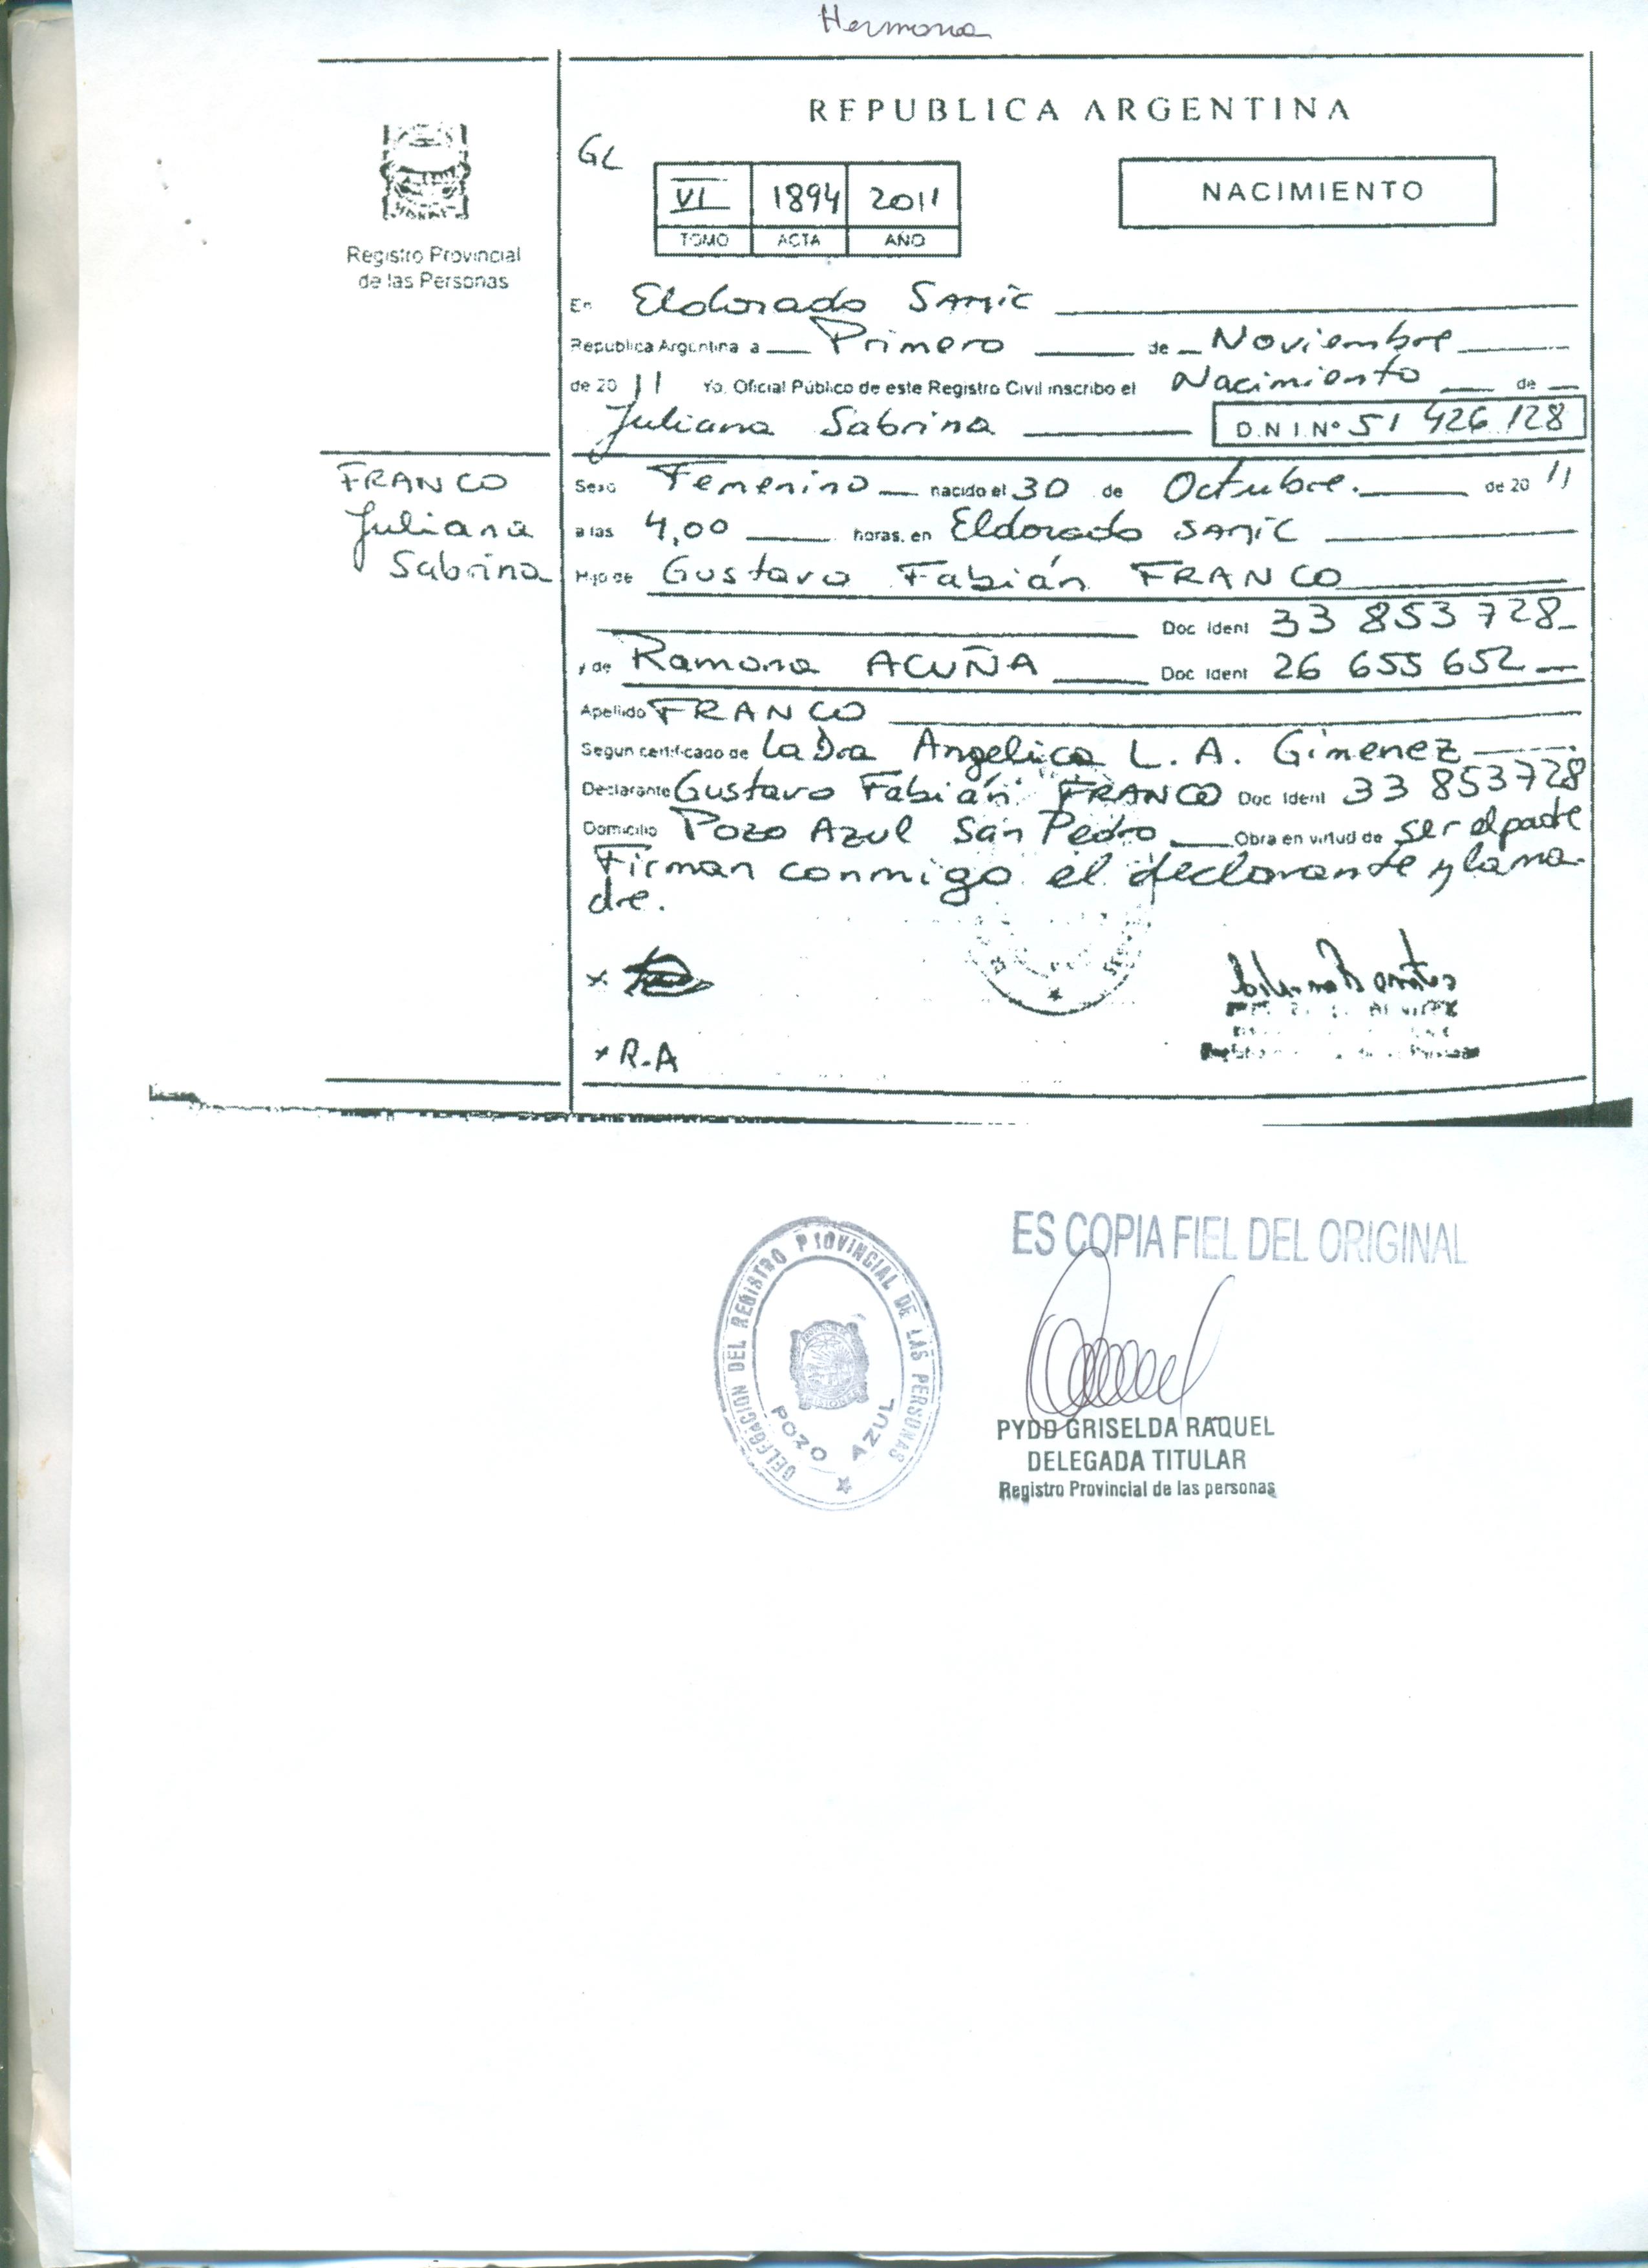 Hermana
REPUBLICA ARGENTINA
GL
VI 1894 2011
TOMO ACTA AÑO
NACIMIENTO
Registro Provincial
de las Personas
En Eldorado SAMIC
Republica Argentina a Primero de Noviembre
de 2011 Yo, Oficial Público de este Registro Civil inscribo el Nacimiento de
Juliana Sabrina D.N.I.Nº 51 426 128
FRANCO
Juliana
Sabrina
Sexo Femenino nacido el 30 de Octubre. de 2011
a las 4,00 horas, en Eldorado SAMIC
Hijo de Gustavo Fabián FRANCO
Doc Ident 33 853 728
y de Ramona ACUÑA Doc Ident 26 655 652
Apellido FRANCO
Segun certificado de La Dra Angelica L. A. Gimenez
Declarante Gustavo Fabián FRANCO Doc Ident 33 853728
Domicilio Pozo Azul San Pedro Obra en virtud de ser el padre
Firman conmigo el declarante y la ma-
dre.
x
x R.A
ES COPIA FIEL DEL ORIGINAL
DELEGACION DEL REGISTRO PROVINCIAL DE LAS PERSONAS
POZO AZUL
PYDD GRISELDA RAQUEL
DELEGADA TITULAR
Registro Provincial de las personas